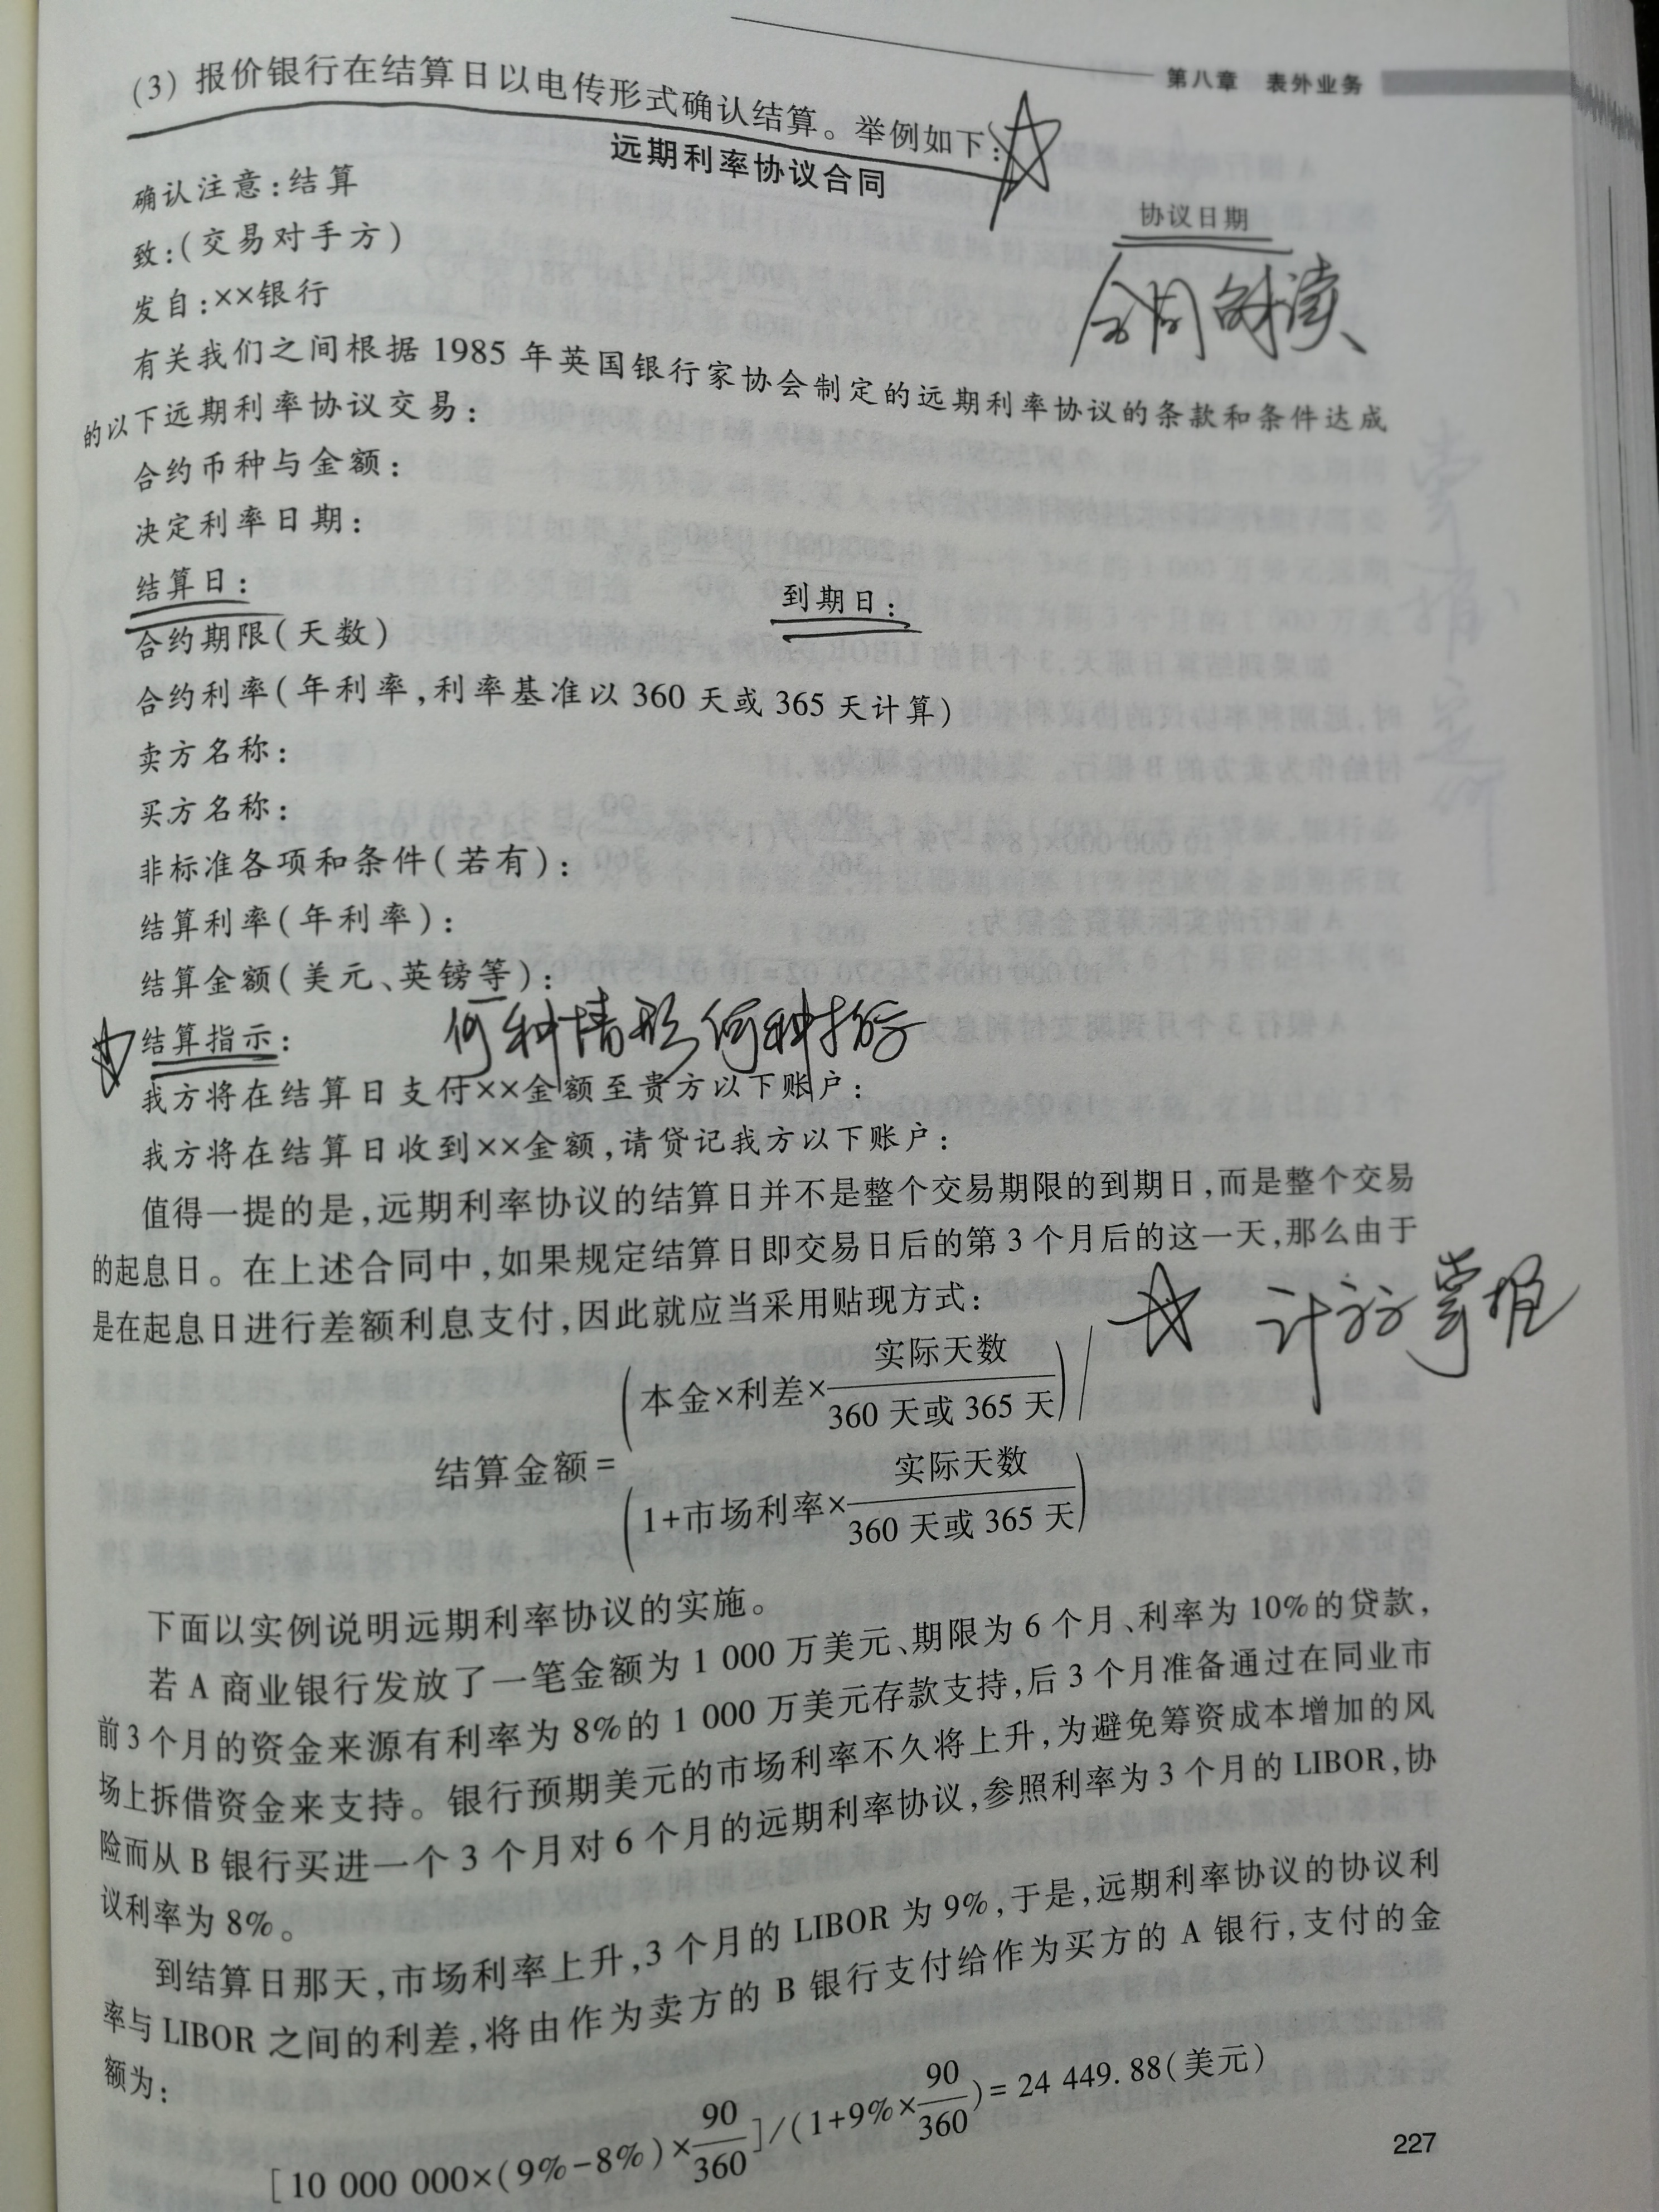 第八章 表外业务
(3) 报价银行在结算日以电传形式确认结算。举例如下:
远期利率协议合同
确认注意:结算
协议日期
致:(交易对手方)
合同的读
发自:××银行
有关我们之间根据 1985 年英国银行家协会制定的远期利率协议的条款和条件达成
的以下远期利率协议交易:
合约币种与金额:
决定利率日期:
结算日: 到期日:
合约期限(天数)
合约利率(年利率,利率基准以 360 天或 365 天计算)
卖方名称:
买方名称:
非标准各项和条件(若有):
结算利率(年利率):
结算金额(美元、英镑等):
结算指示: 何种情形何种指示
我方将在结算日支付××金额至贵方以下账户:
我方将在结算日收到××金额,请贷记我方以下账户:
值得一提的是,远期利率协议的结算日并不是整个交易期限的到期日,而是整个交易
的起息日。在上述合同中,如果规定结算日即交易日后的第 3 个月后的这一天,那么由于
是在起息日进行差额利息支付,因此就应当采用贴现方式:
结算金额=(本金×利差×实际天数/360 天或 365 天)/(1+市场利率×实际天数/360 天或 365 天)
下面以实例说明远期利率协议的实施。
若 A 商业银行发放了一笔金额为 1 000 万美元、期限为 6 个月、利率为 10%的贷款,
前 3 个月的资金来源有利率为 8%的 1 000 万美元存款支持,后 3 个月准备通过在同业市
场上拆借资金来支持。银行预期美元的市场利率不久将上升,为避免筹资成本增加的风
险而从 B 银行买进一个 3 个月对 6 个月的远期利率协议,参照利率为 3 个月的 LIBOR,协
议利率为 8%。
到结算日那天,市场利率上升,3 个月的 LIBOR 为 9%,于是,远期利率协议的协议利
率与 LIBOR 之间的利差,将由作为卖方的 B 银行支付给作为买方的 A 银行,支付的金
额为:
[10 000 000×(9%-8%)×90/360]/(1+9%×90/360)=24 449.88(美元)
227